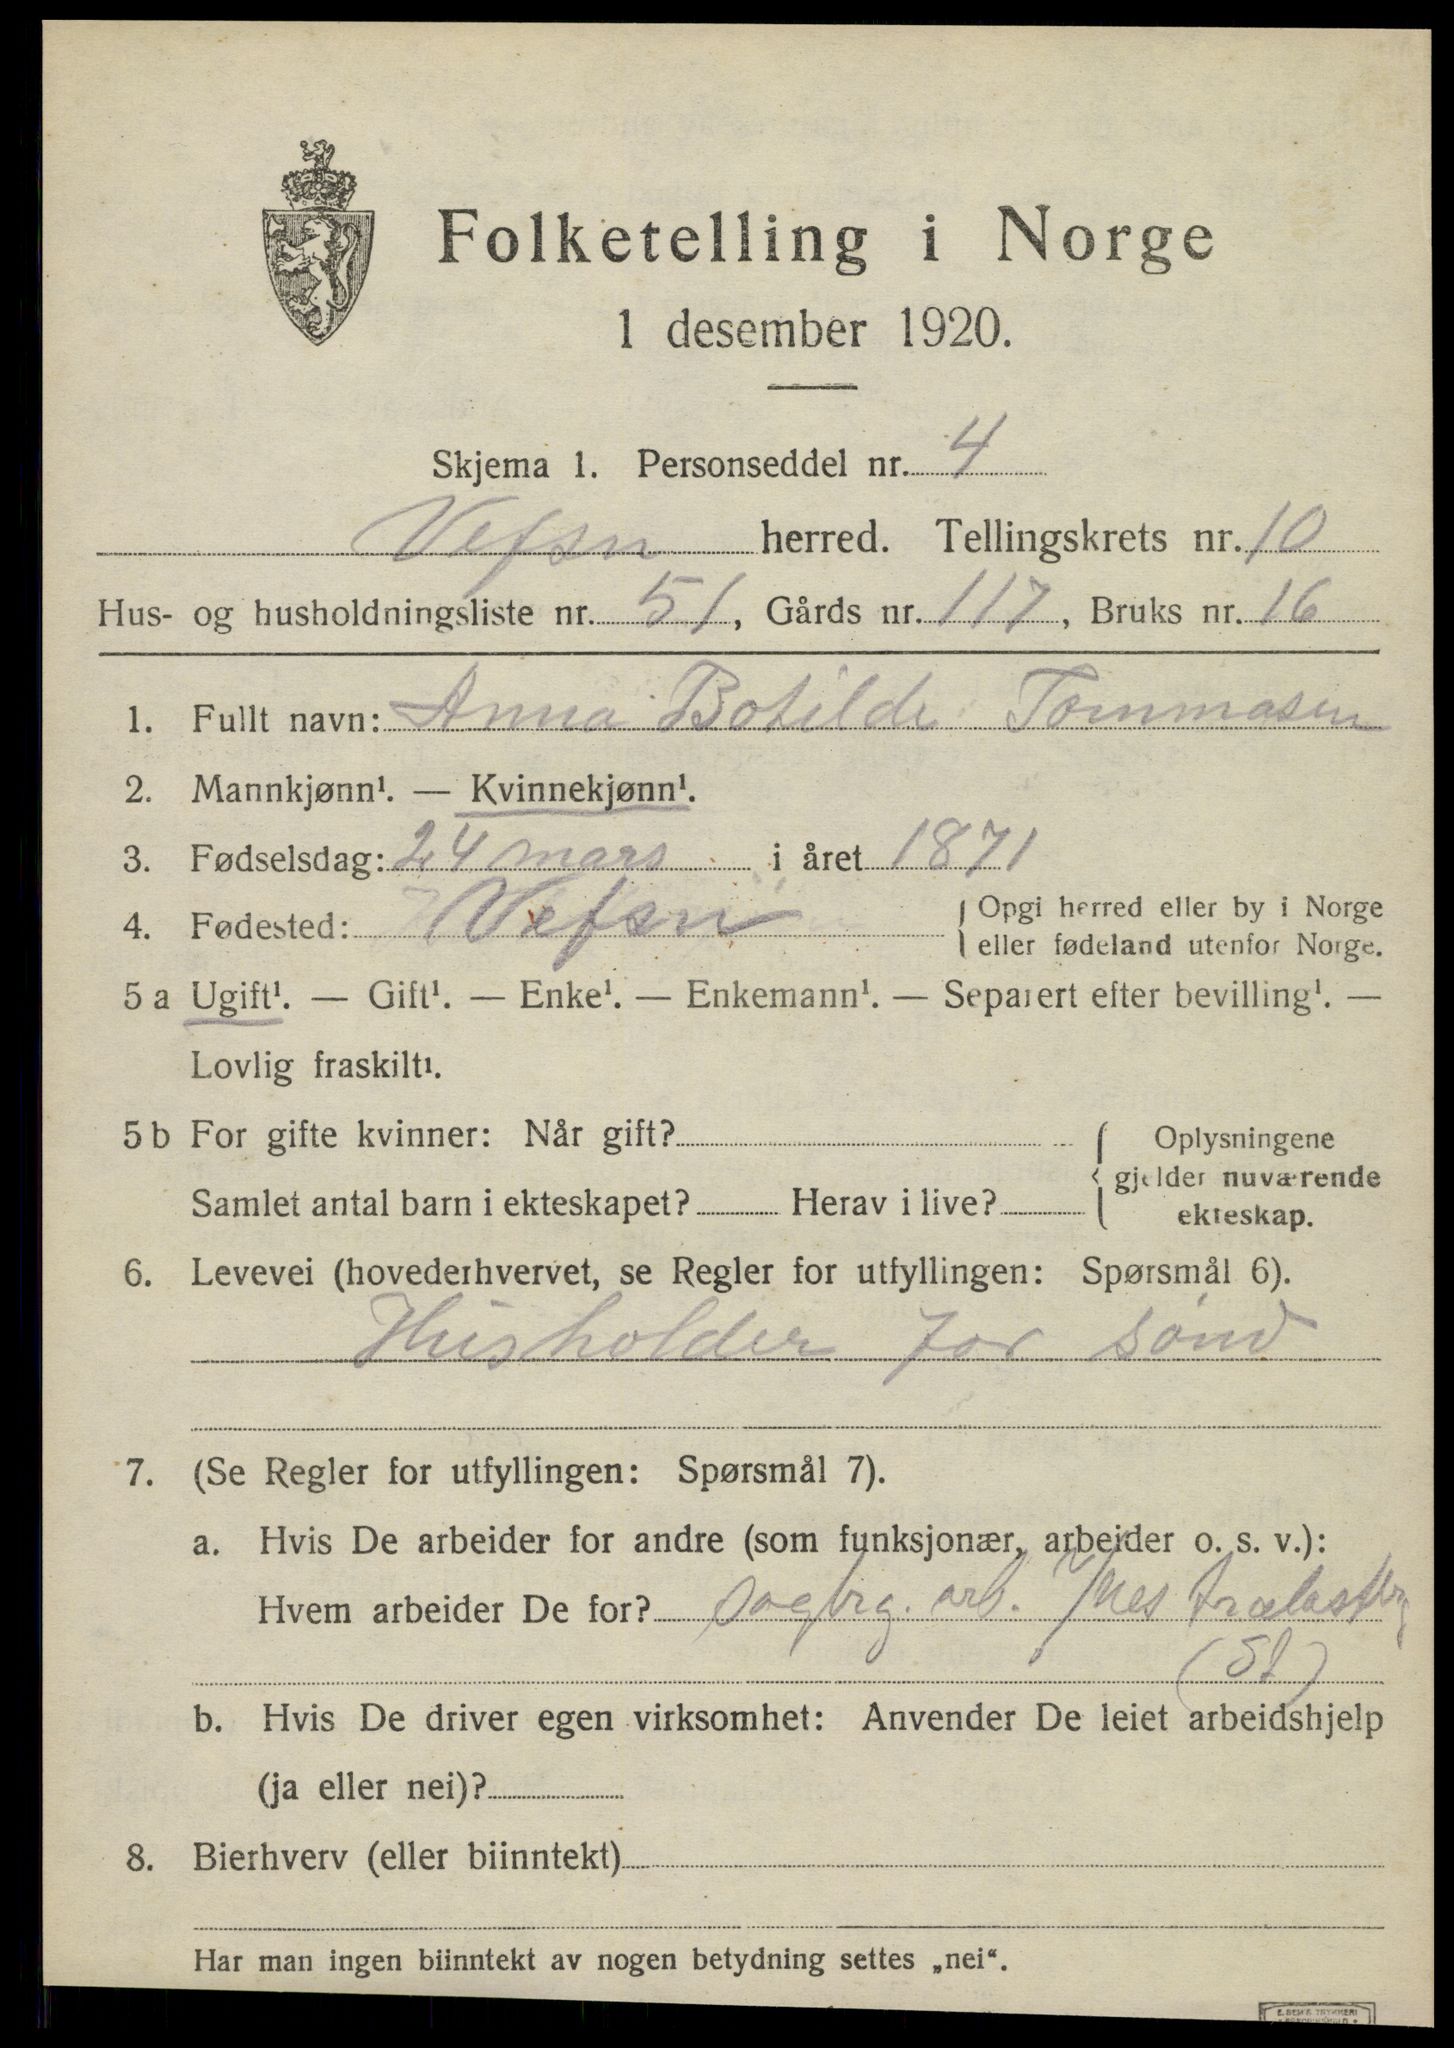 Folketelling i Norge
1 desember 1920.
Skjema 1. Personseddel nr. 4
Vefsn herred. Tellingskrets nr. 10
Hus- og husholdningsliste nr. 51, Gårds nr. 117, Bruks nr. 16
1. Fullt navn: Anna Botilde Tommasen
2. Mannkjønn¹. — Kvinnekjønn¹.
3. Fødselsdag: 24 mars i året 1871
4. Fødested: Vefsn { Opgi herred eller by i Norge
eller fødeland utenfor Norge.
5 a Ugift¹. — Gift¹. — Enke¹. — Enkemann¹. — Separert efter bevilling¹. —
Lovlig fraskilt¹.
5 b For gifte kvinner: Når gift? { Oplysningene
gjelder nuværende
Samlet antal barn i ekteskapet? Herav i live? ekteskap.
6. Levevei (hovederhvervet, se Regler for utfyllingen: Spørsmål 6).
Husholder for sönd
7. (Se Regler for utfyllingen: Spørsmål 7).
a. Hvis De arbeider for andre (som funksjonær, arbeider o. s. v.):
Hvem arbeider De for? Sagbrg. arb. v/ Nes trælastbrg
(St)
b. Hvis De driver egen virksomhet: Anvender De leiet arbeidshjelp
(ja eller nei)?
8. Bierhverv (eller biinntekt)
Har man ingen biinntekt av nogen betydning settes „nei“.
E. SEM'S TRYKKERI